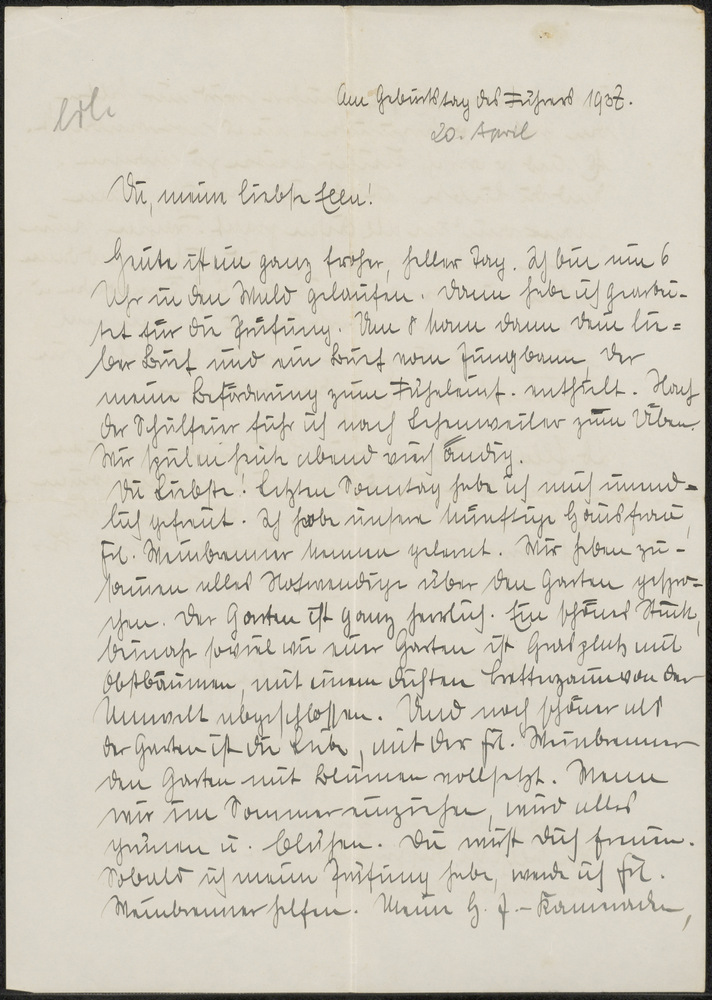 Am Geburtstag des Führers 1937.
20. April
Du, meine liebste Ellen!
Heute ist ein ganz froher, heller Tag. Ich bin um 6
Uhr in den Wald gelaufen. Dann habe ich gearbei-
tet für die Prüfung. Um 8 kam dann dein lie-
ber Brief und ein Brief vom Jungbann, der
meine Beförderung zum enthielt. Nach
der Schulfeier fuhr ich nach zum Üben.
Wir spielen heute abend vierhändig.
Du Liebste! Letzten Sonntag habe ich mich unend-
lich gefreut. Ich habe unsere künftige Hausfrau,
Frl. Weinbrenner kennen gelernt. Wir haben zu-
sammen alles Notwendige über den Garten gespro-
chen. Der Garten ist ganz herrlich. Ein schönes Stück,
beinahe soviel wie euer Garten ist Grasplatz mit
Obstbäumen, mit einem dichten Bretterzaun von der
Umwelt abgeschlossen. Und noch schöner als
der Garten ist die Liebe, mit der Frl. Weinbrenner
den Garten mit Blumen vollsetzt. Wenn
wir im Sommer einziehen, wird alles
grünen u. blühen. Du mußt dich freuen.
Sobald ich meine Prüfung habe, werde ich Frl.
Weinbrenner helfen. Meine H. J.-Kameraden,